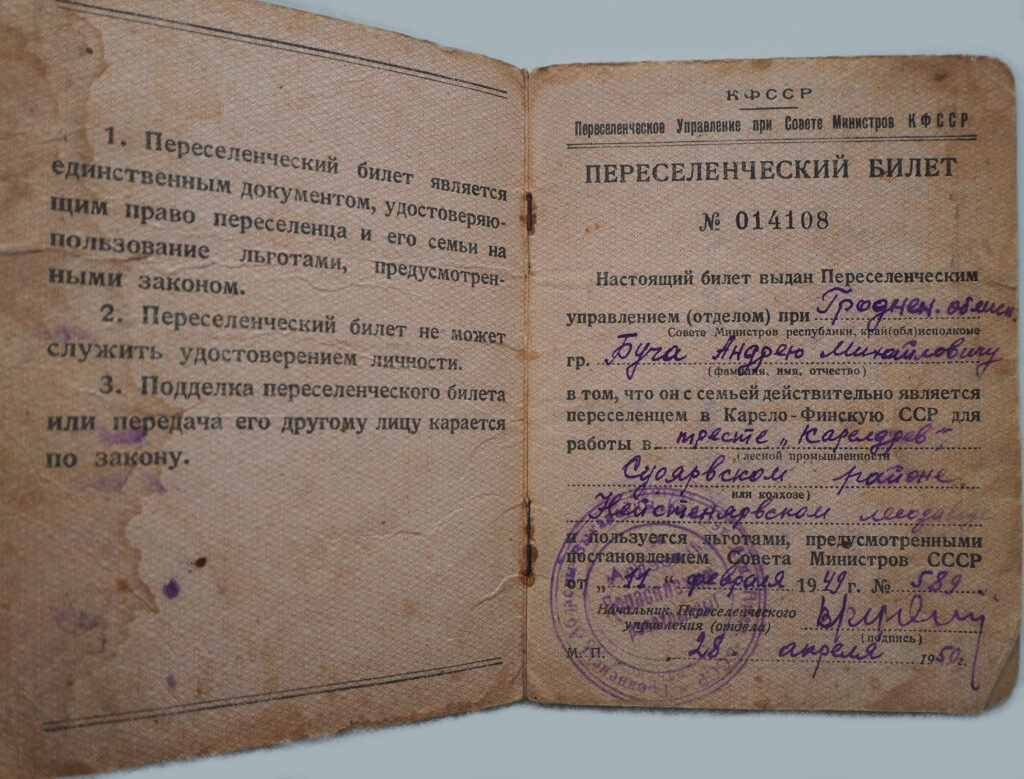 1. Переселенческий билет является
единственным документом, удостоверяю-
щим право переселенца и его семьи на
пользование льготами, предусмотрен-
ными законом.
2. Переселенческий билет не может
служить удостоверением личности.
3. Подделка переселенческого билета
или передача его другому лицу карается
по закону.
КФССР
Переселенческое Управление при Совете Министров КФССР
ПЕРЕСЕЛЕНЧЕСКИЙ БИЛЕТ
№ 014108
Настоящий билет выдан Переселенческим
управлением (отделом) при Гроднен. облисп.
Совете Министров республики, край(обл)исполкоме
гр. Буча Андрею Михайловичу
(фамилия, имя, отчество)
в том, что он с семьей действительно является
переселенцем в Карело-Финскую ССР для
работы в тресте „Карелдрев"
(лесной промышленности
Суоярвском районе
или колхозе)
Нейстенярвском
и пользуется льготами, предусмотренными
постановлением Совета Министров СССР
от „11" февраля 1949 г. № 589
Начальник Переселенческого
управления (отдела)
(подпись)
М. П. „28" апреля 1950 г.